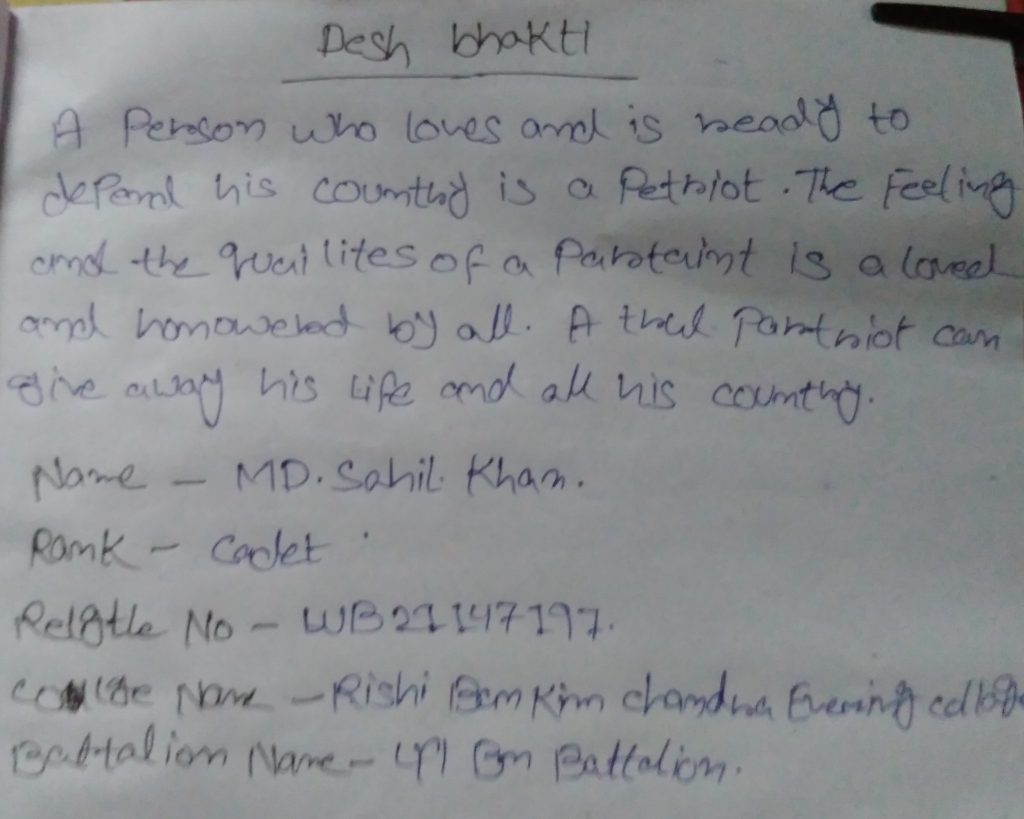 Desh bhakti
A Person who loves and is ready to
defend his country is a Petriot. The Feeling
and the quailites of a Parotaint is a loved
and honowered by all. A trul Partriot can
give away his life and all his country.
Name - MD. Sahil Khan.
Rank - Cadet
No - WB21147197.
Name - Rishi Bankim chandra Evening
Battalion Name - Bn Battalion.